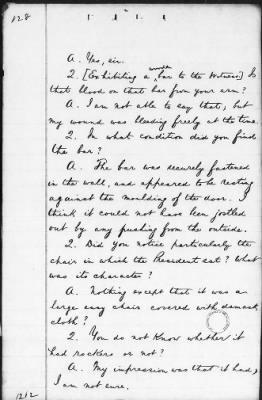 128
A. Yes, sir.
Q. [Exhibiting a wooden bar to the Witness] Is
that blood on that bar from your arm?
A. I am not able to say that; but
my wound was bleeding freely at the time.
Q. In what condition did you find
the bar?
A. The bar was securely fastened
in the wall, and appeared to be resting
against the moulding of the door. I
think it could not have been jostled
out by any pushing from the outside.
Q. Did you notice particularly the
chair in which the President sat? What
was its character?
A. Nothing except that it was a
large easy chair covered with damask
cloth.
Q. You do not know whether it
had rockers or not?
A. My impression was that it had;
I am not sure.
1212